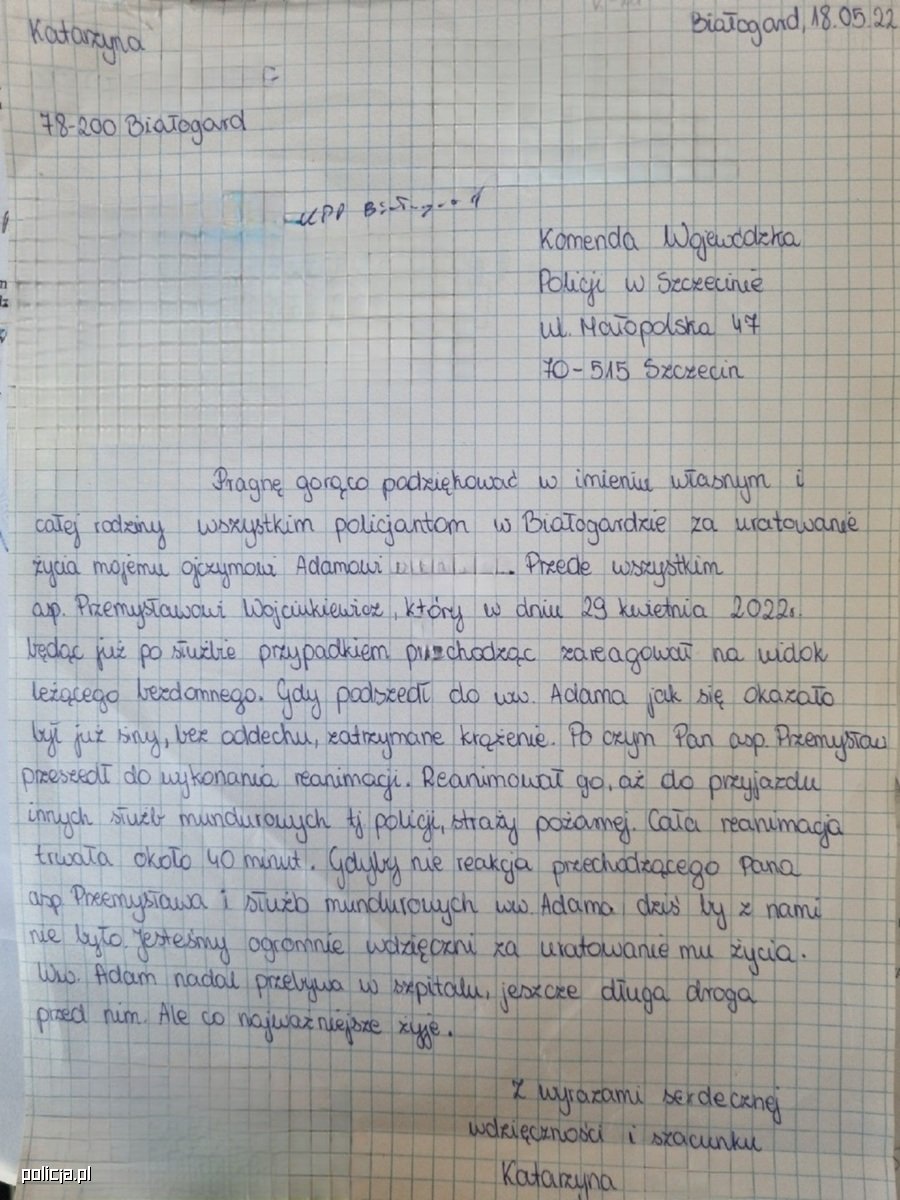 Katarzyna
Białogard, 18.05.22
78-200 Białogard
KPP
Komenda Wojewódzka
Policji w Szczecinie
ul. Małopolska 47
70-515 Szczecin
Pragnę gorąco podziękować w imieniu własnym i
całej rodziny wszystkim policjantom w Białogardzie za uratowanie
życia mojemu ojczymowi Adamowi . Przede wszystkim
asp. Przemysławowi Wojciukiewicz, który w dniu 29 kwietnia 2022r.
będąc już po służbie przypadkiem przechodząc zareagował na widok
leżącego bezdomnego. Gdy podszedł do ww. Adama jak się okazało
był już siny, bez oddechu, zatrzymane krążenie. Po czym Pan asp. Przemysław
przeszedł do wykonania reanimacji. Reanimował go, aż do przyjazdu
innych służb mundurowych tj policji, straży pożarnej. Cała reanimacja
trwała około 40 minut. Gdyby nie reakcja przechodzącego Pana
asp. Przemysława i służb mundurowych ww. Adama dziś by z nami
nie było. Jesteśmy ogromnie wdzięczni za uratowanie mu życia.
Ww. Adam nadal przebywa w szpitalu, jeszcze długa droga
przed nim. Ale co najważniejsze żyje.
Z wyrazami serdecznej
wdzięczności i szacunku
Katarzyna
policja.pl